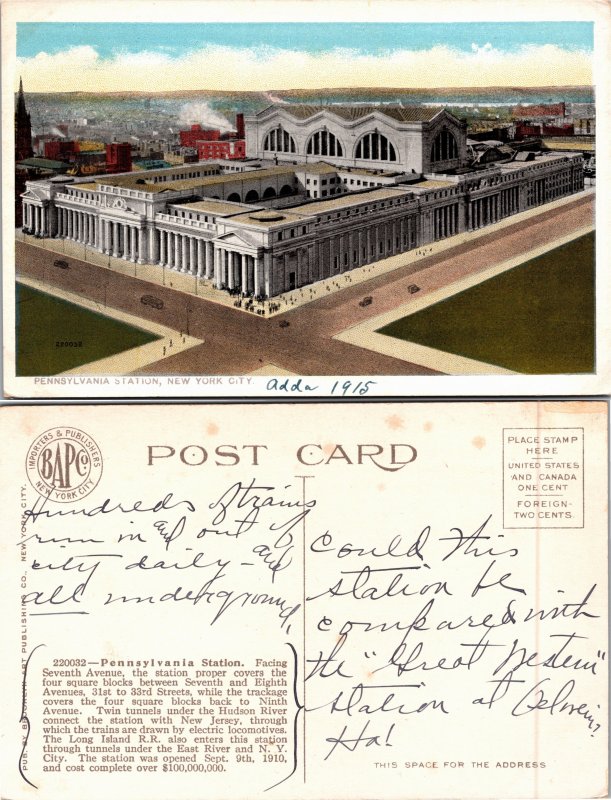 220032
PENNSYLVANIA STATION, NEW YORK CITY.
Adda 1915
IMPORTERS & PUBLISHERS
BAPCo.
NEW YORK CITY
POST CARD
PLACE STAMP
HERE
UNITED STATES
AND CANADA
ONE CENT
FOREIGN-
TWO CENTS.
Hundreds of trains
run in and out of
city daily - and
all underground,
220032—Pennsylvania Station. Facing
Seventh Avenue, the station proper covers the
four square blocks between Seventh and Eighth
Avenues, 31st to 33rd Streets, while the trackage
covers the four square blocks back to Ninth
Avenue. Twin tunnels under the Hudson River
connect the station with New Jersey, through
which the trains are drawn by electric locomotives.
The Long Island R.R. also enters this station
through tunnels under the East River and N. Y.
City. The station was opened Sept. 9th, 1910,
and cost complete over $100,000,000.
Could this
station be
compared with
the "Great Western"
station at
Ha!
THIS SPACE FOR THE ADDRESS
ART PUBLISHING CO., NEW YORK CITY.